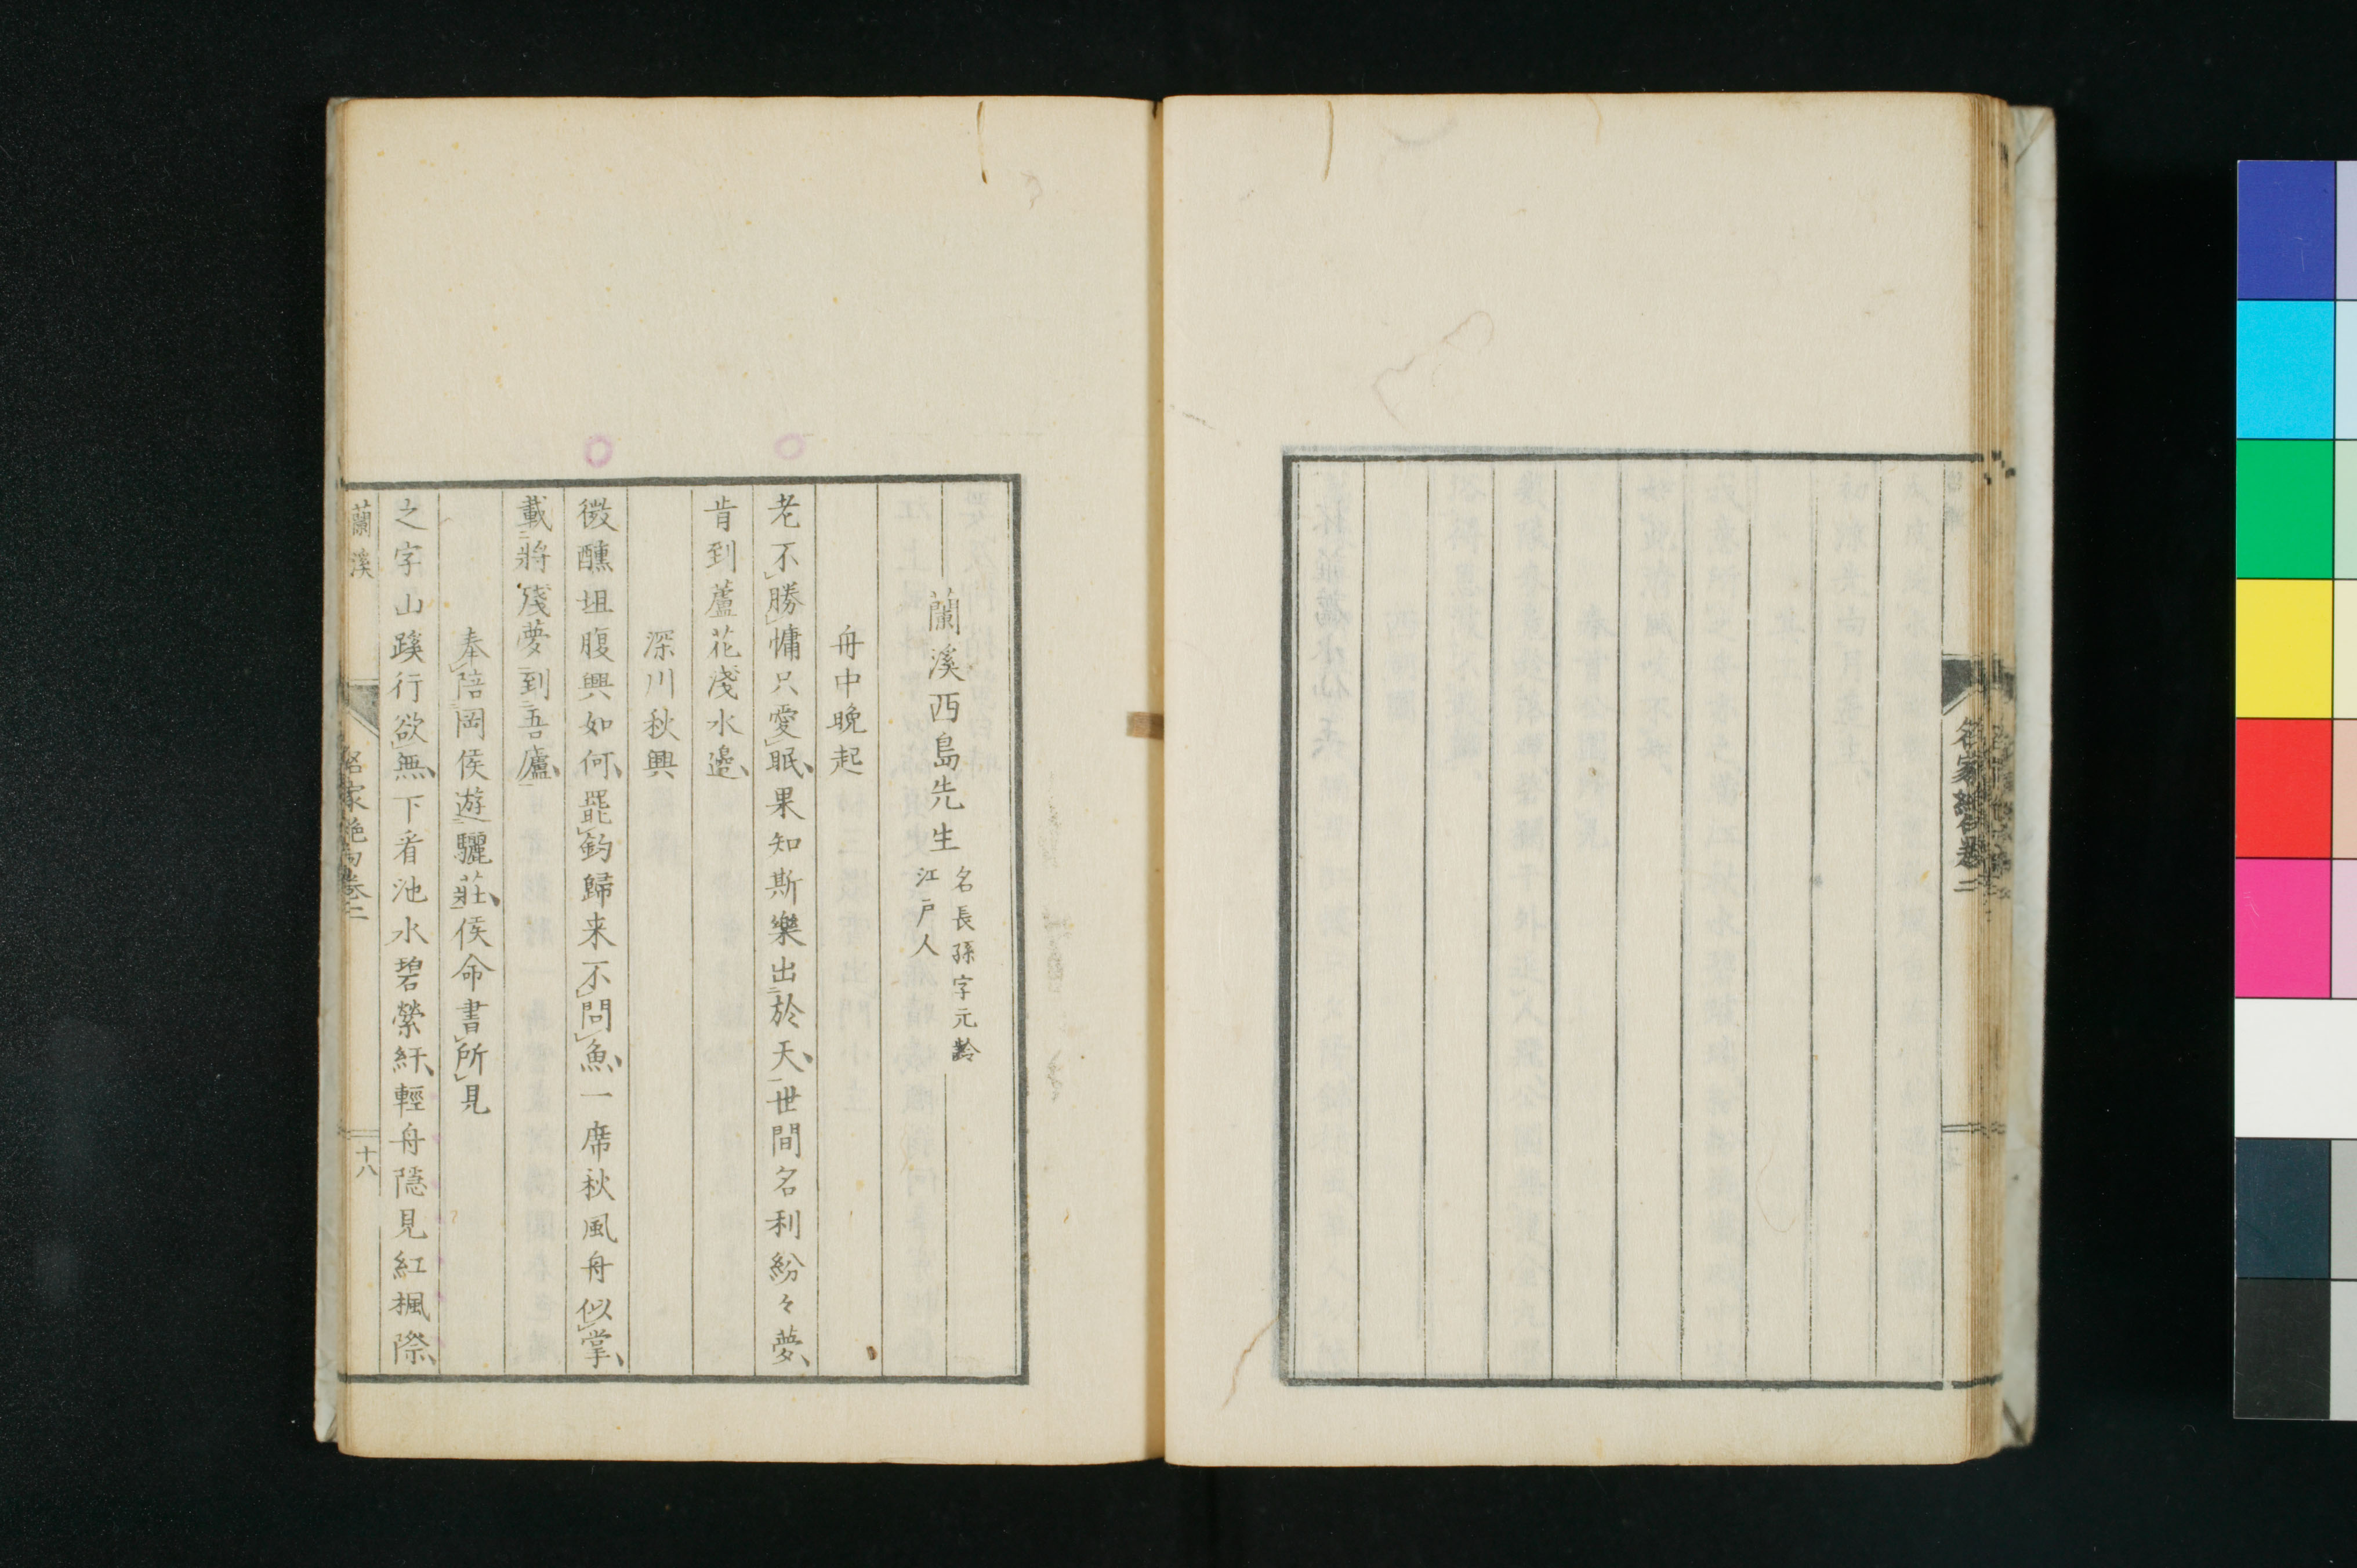 名家絶句卷二
蘭溪西島先生 名長孫字元齡
江戶人
舟中晚起
老不勝慵只愛眠果知斯樂出於天世間名利紛々夢
肯到蘆花淺水邊
深川秋興
微醺坦腹興如何罷釣歸来不問魚一席秋風舟似掌
載將殘夢到吾廬
奉陪岡侯遊驪莊侯命書所見
之字山蹊行欲無下看池水碧縈紆輕舟隱見紅楓際
蘭溪
名家絶句卷二
十八